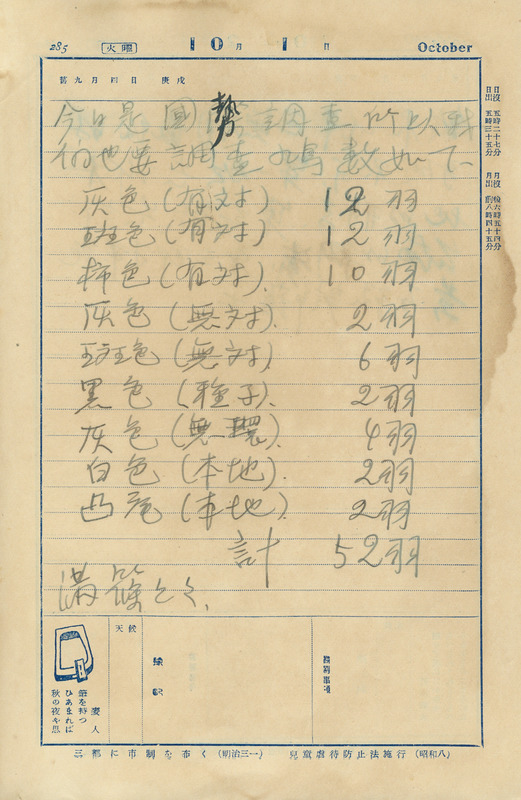 285
火曜
10月1日
October
舊九月四日 庚戌
日出 五時三十五分
日沒 五時二十七分
月出 前八時四十五分
月沒 後六時五十四分
今日是國勢調查所以我
們也要調查鳩數如下
灰色(有対) 12羽
斑色(有対) 12羽
柿色(有対) 10羽
灰色(無対) 2羽
斑色(無対) 6羽
黑色(種子) 2羽
灰色(無環) 4羽
白色(本地) 2羽
凸尾(本地) 2羽
計 52羽
滿篠
天候
豫記事項
筆を持つ
ひまあれば
秋の夜や思
三都に市制を布く(明治三一)
兒童虐待防止法施行(昭和八)